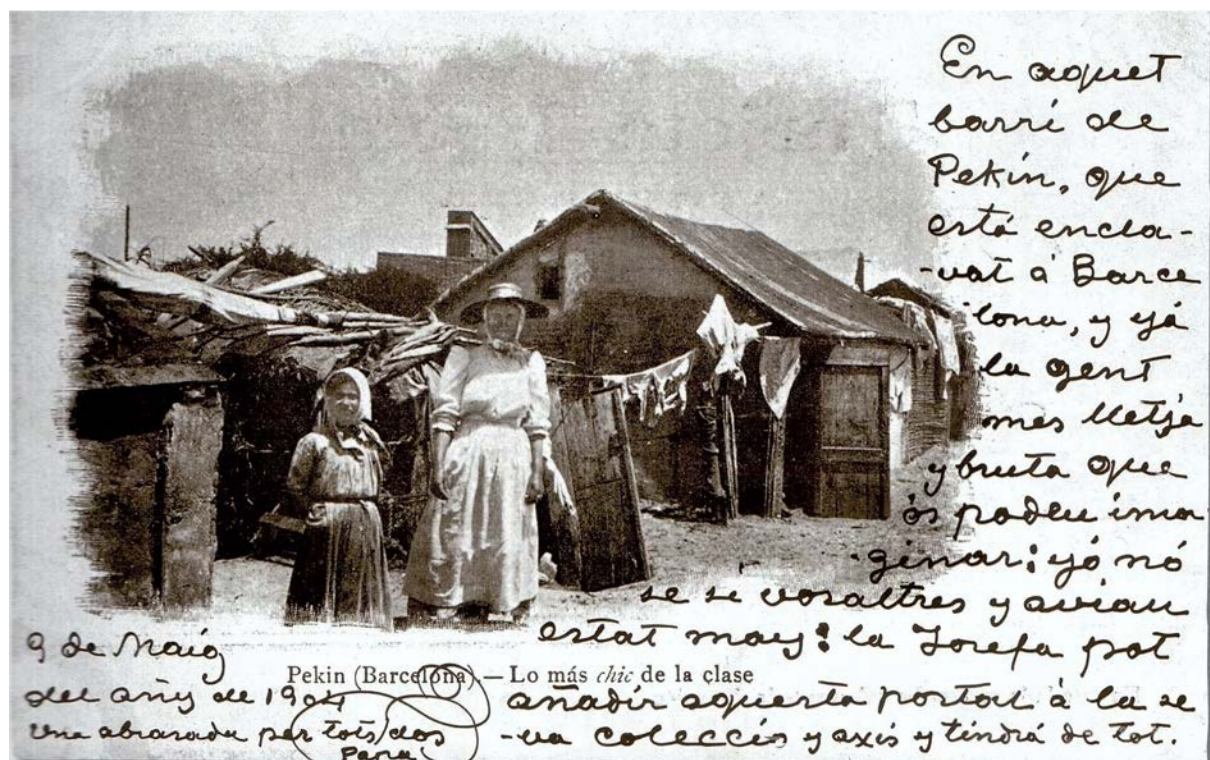 En aquet
barri de
Pekín, que
está encla-
-vat á Barce
lona, y yá
la gent
mes lletja
y bruta que
ós podeu ima
-ginar; yó nó
se se vosaltres y aviau
estat may; la Josefa pot
añadir aquesta postal á la se
-va colecció y axis y tindrá de tot.
9 de Maig
del añy de 1904
una abrasada per tots dos
Papa
Pekin (Barcelona).— Lo más chic de la clase